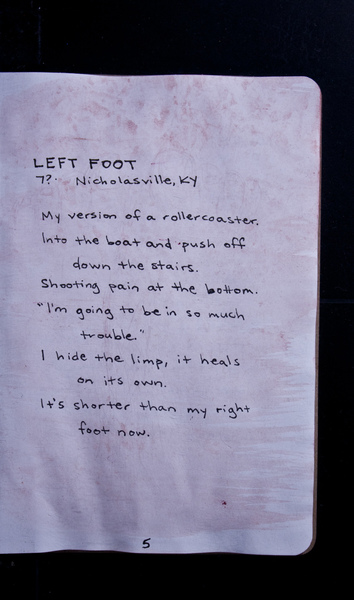 LEFT FOOT
7? Nicholasville, KY
My version of a rollercoaster.
Into the boat and push off
down the stairs.
Shooting pain at the bottom.
"I'm going to be in so much
trouble."
I hide the limp, it heals
on its own.
It's shorter than my right
foot now.
5